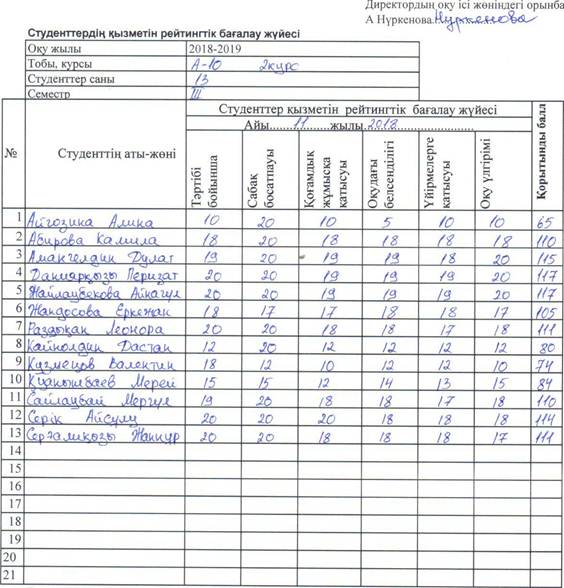 Директордың оқу ісі жөніндегі орынба
А Нүркенова Нүркенова
Студенттердің қызметін рейтингтік бағалау жүйесі
Оқу жылы 2018-2019
Тобы, курсы А-10 2курс
Студенттер саны 13
Семестр III
№ Студенттің аты-жөні Студенттер қызметін рейтингтік бағалау жүйесі Қорытынды балл
Айы 11 жылы 2018
Тәртібі бойынша Сабақ босатпауы Қоғамдық жұмысқа қатысуы Оқудағы белсенділігі Үйірмелерге қатысуы Оқу үлгірімі
1 Айгозина Алина 10 20 10 5 10 10 65
2 Абирова Камила 18 20 18 18 18 18 110
3 Амангелдин Дулат 19 20 19 19 18 20 115
4 Даниярқызы Перизат 20 20 19 19 19 20 117
5 Жайлаубекова Айнагүл 20 20 19 19 19 20 117
6 Жандосова Еркежан 18 17 17 18 18 17 105
7 Раздықан Леонора 20 20 18 18 17 18 111
8 Кайнолдин Дастан 12 20 12 12 12 12 80
9 Кузмецов Валентин 18 12 10 12 12 10 74
10 Қуанышбаев Мерей 15 15 12 14 13 15 84
11 Сайлаубай Мергүл 19 20 18 18 17 18 110
12 Серік Айсұлу 20 20 20 18 18 18 114
13 Серғалиқызы Жаннұр 20 20 18 18 18 17 111
14
15
16
17
18
19
20
21